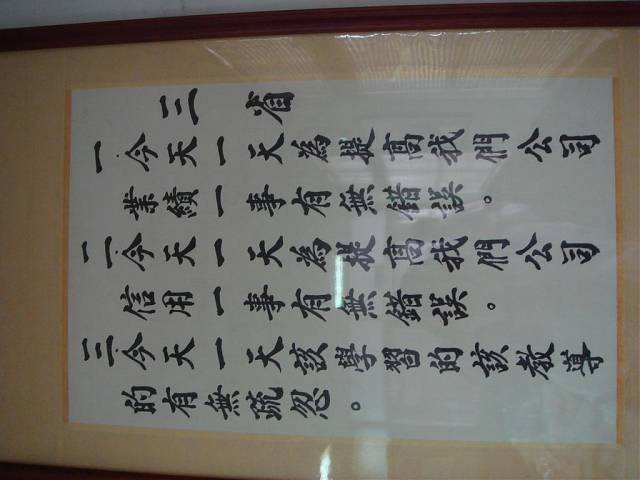 三省
一今天一天為提高我們公司
業績一事有無錯誤。
二今天一天為提高我們公司
信用一事有無錯誤。
三今天一天該學習的該教導
的有無疏忽。